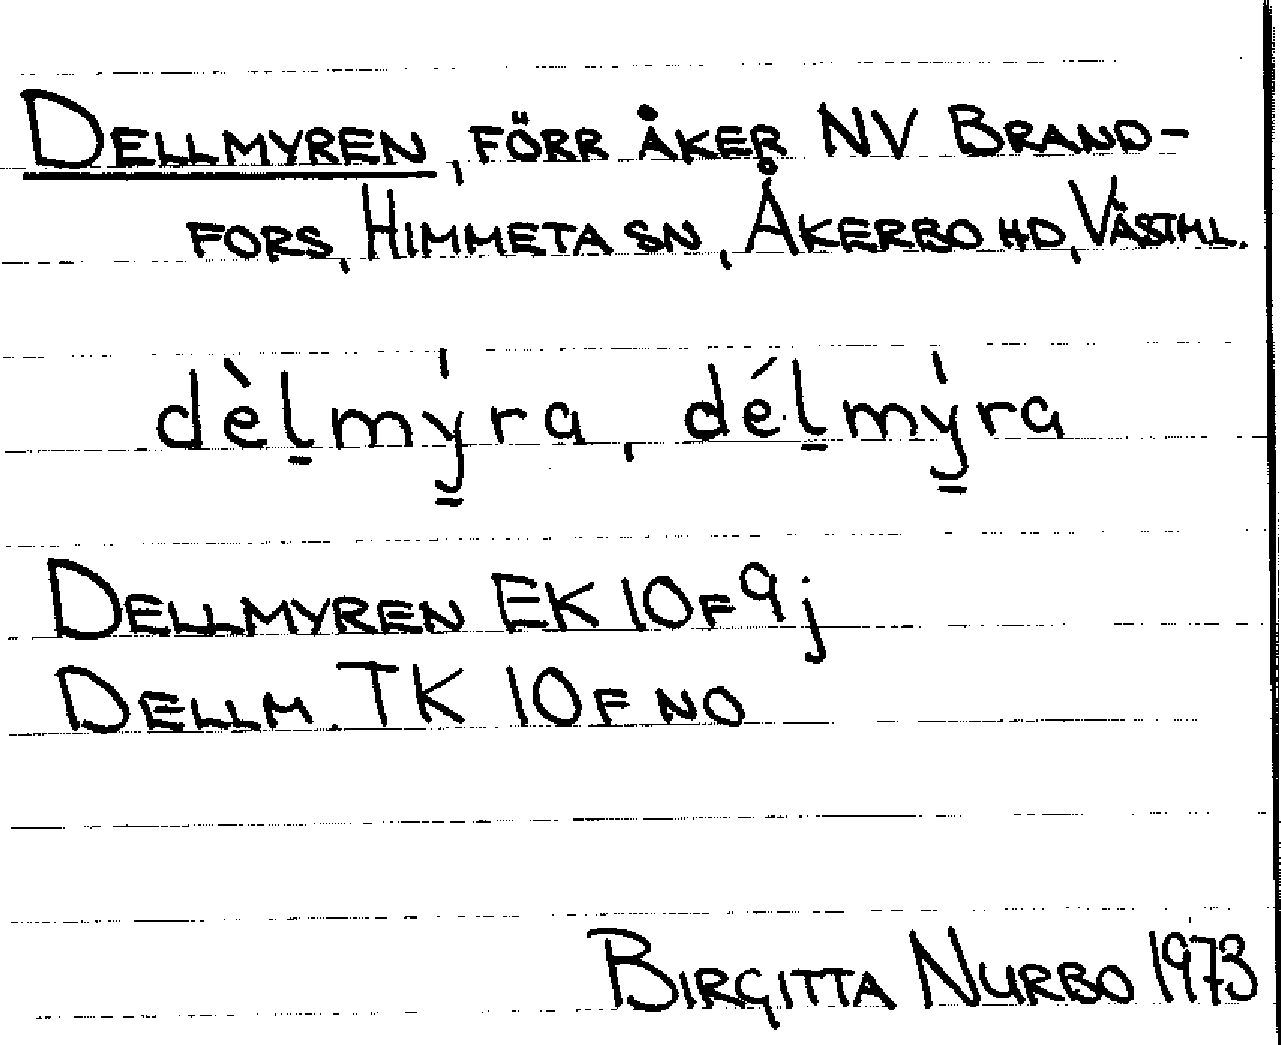 DELLMYREN, FÖRR ÅKER NV BRAND-
FORS, HIMMETA SN, ÅKERBO HD, VÄSTML.
dèl̠mý̳ra, dél̠mý̳ra
DELLMYREN EK 10F9j
DELLM. TK 10F NO
BIRGITTA NURBO 1973